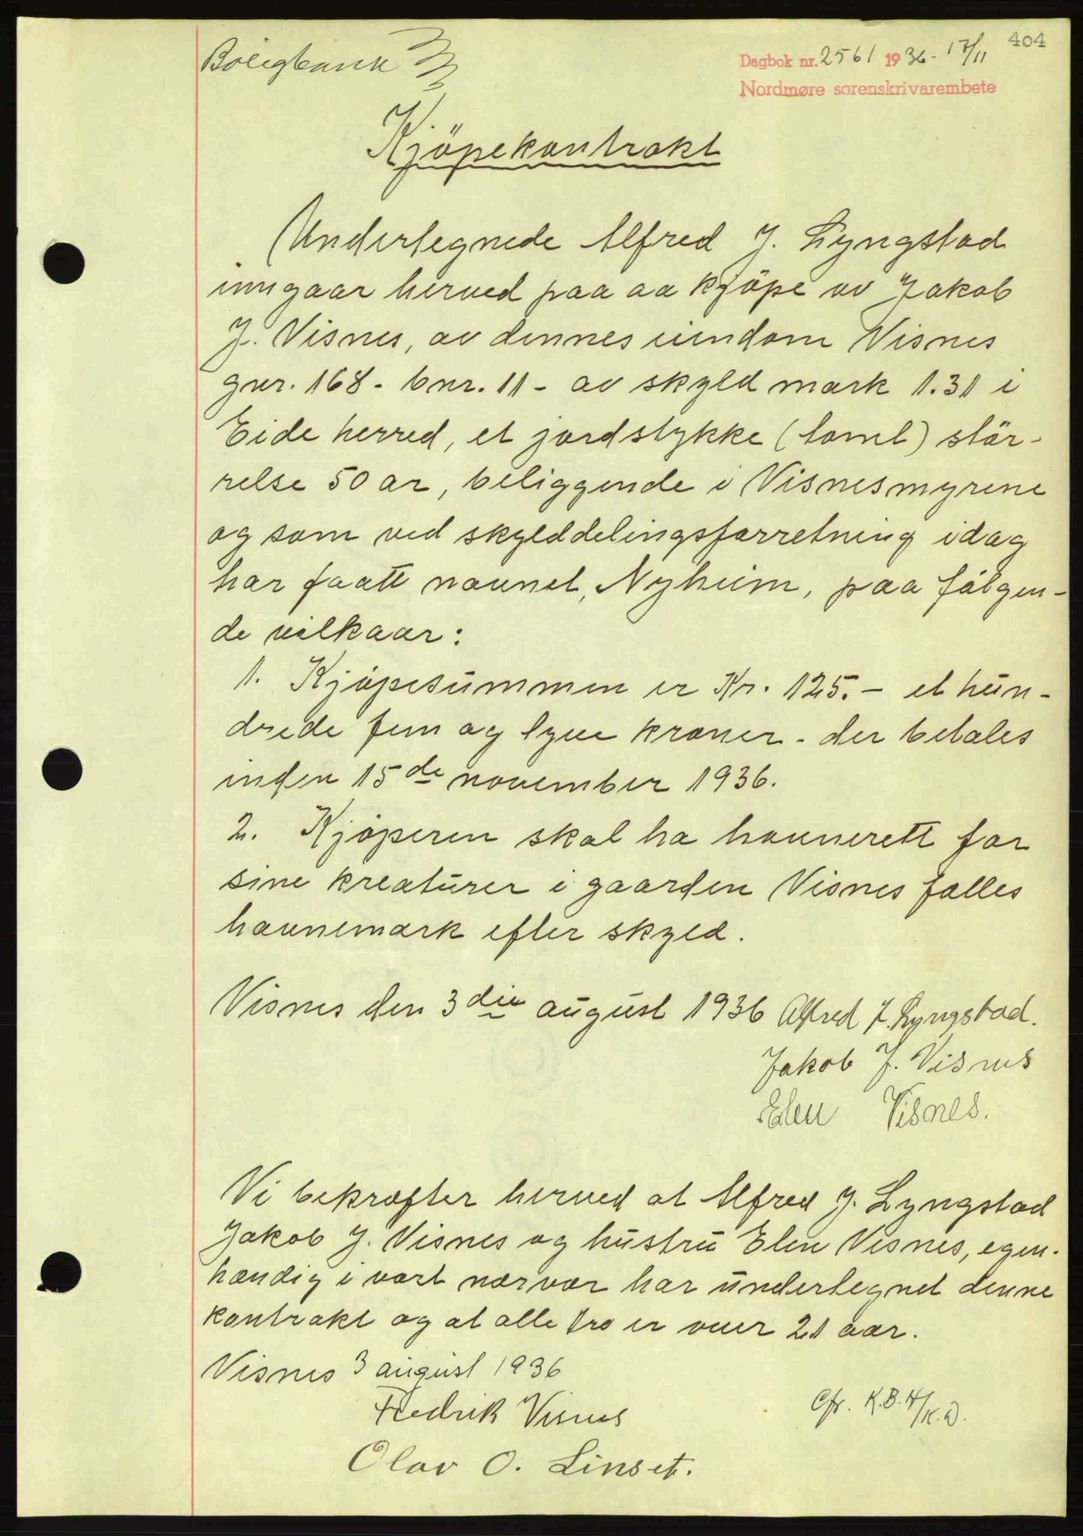 404
Boligbank
Dagbok nr. 2561 1936 - 17/11
Nordmøre sorenskrivarembete
Kjöpekontrakt
Undertegnede Alfred J. Lyngstad
inngaar herved paa aa kjöpe av Jakob
J. Visnes, av dennes eiendom Visnes
gnr. 168 - bnr. 11 - av skyld mark 1.31 i
Eide herred, et jordstykke (tomt) stör-
relse 50 ar, beliggende i Visnesmyrene
og som ved skylddelingsforretning idag
har faatt navnet, Nyheim, paa fölgen-
de vilkaar:
1. Kjöpesummen er Kr. 125.- et hun-
drede fem og tyve kroner - der betales
inden 15de november 1936.
2. Kjöperen skal ha havnerett for
sine kreaturer i gaarden Visnes felles
havnemark efter skyld.
Visnes den 3die august 1936 Alfred J. Lyngstad.
Jakob J. Visnes
Elen Visnes.
Vi bekrefter herved at Alfred J. Lyngstad
Jakob J. Visnes og hustru Elen Visnes, egen-
hændig i vort nærvær har undertegnet denne
kontrakt og at alle tre er over 21 aar.
Visnes 3 august 1936
Fredrik Visnes
Cfr. K.B.
Olav O. Linset.